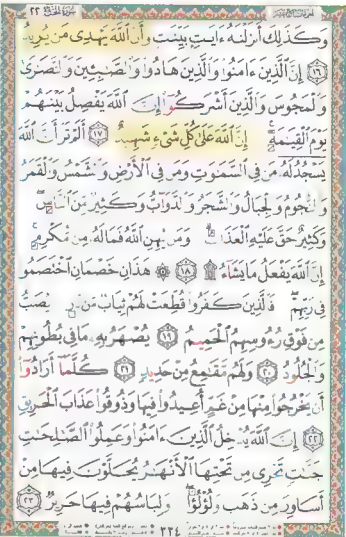 وَكَذَٰلِكَ أَنزَلْنَٰهُ ءَايَٰتٍۭ بَيِّنَٰتٍ وَأَنَّ ٱللَّهَ يَهْدِى مَن يُرِيدُ
١٦ إِنَّ ٱلَّذِينَ ءَامَنُوا۟ وَٱلَّذِينَ هَادُوا۟ وَٱلصَّٰبِـِٔينَ وَٱلنَّصَٰرَىٰ
وَٱلْمَجُوسَ وَٱلَّذِينَ أَشْرَكُوٓا۟ إِنَّ ٱللَّهَ يَفْصِلُ بَيْنَهُمْ
يَوْمَ ٱلْقِيَٰمَةِ إِنَّ ٱللَّهَ عَلَىٰ كُلِّ شَىْءٍ شَهِيدٌ ١٧ أَلَمْ تَرَ أَنَّ ٱللَّهَ
يَسْجُدُ لَهُۥ مَن فِى ٱلسَّمَٰوَٰتِ وَمَن فِى ٱلْأَرْضِ وَٱلشَّمْسُ وَٱلْقَمَرُ
وَٱلنُّجُومُ وَٱلْجِبَالُ وَٱلشَّجَرُ وَٱلدَّوَآبُّ وَكَثِيرٌ مِّنَ ٱلنَّاسِ
وَكَثِيرٌ حَقَّ عَلَيْهِ ٱلْعَذَابُ وَمَن يُهِنِ ٱللَّهُ فَمَا لَهُۥ مِن مُّكْرِمٍ
إِنَّ ٱللَّهَ يَفْعَلُ مَا يَشَآءُ ۩ ١٨ ۞ هَٰذَانِ خَصْمَانِ ٱخْتَصَمُوا۟
فِى رَبِّهِمْ فَٱلَّذِينَ كَفَرُوا۟ قُطِّعَتْ لَهُمْ ثِيَابٌ مِّن نَّارٍ يُصَبُّ
مِن فَوْقِ رُءُوسِهِمُ ٱلْحَمِيمُ ١٩ يُصْهَرُ بِهِۦ مَا فِى بُطُونِهِمْ
وَٱلْجُلُودُ ٢٠ وَلَهُم مَّقَٰمِعُ مِنْ حَدِيدٍ ٢١ كُلَّمَآ أَرَادُوٓا۟
أَن يَخْرُجُوا۟ مِنْهَا مِنْ غَمٍّ أُعِيدُوا۟ فِيهَا وَذُوقُوا۟ عَذَابَ ٱلْحَرِيقِ
٢٢ إِنَّ ٱللَّهَ يُدْخِلُ ٱلَّذِينَ ءَامَنُوا۟ وَعَمِلُوا۟ ٱلصَّٰلِحَٰتِ
جَنَّٰتٍ تَجْرِى مِن تَحْتِهَا ٱلْأَنْهَٰرُ يُحَلَّوْنَ فِيهَا مِنْ
أَسَاوِرَ مِن ذَهَبٍ وَلُؤْلُؤًا وَلِبَاسُهُمْ فِيهَا حَرِيرٌ ٢٣
٣٣٤